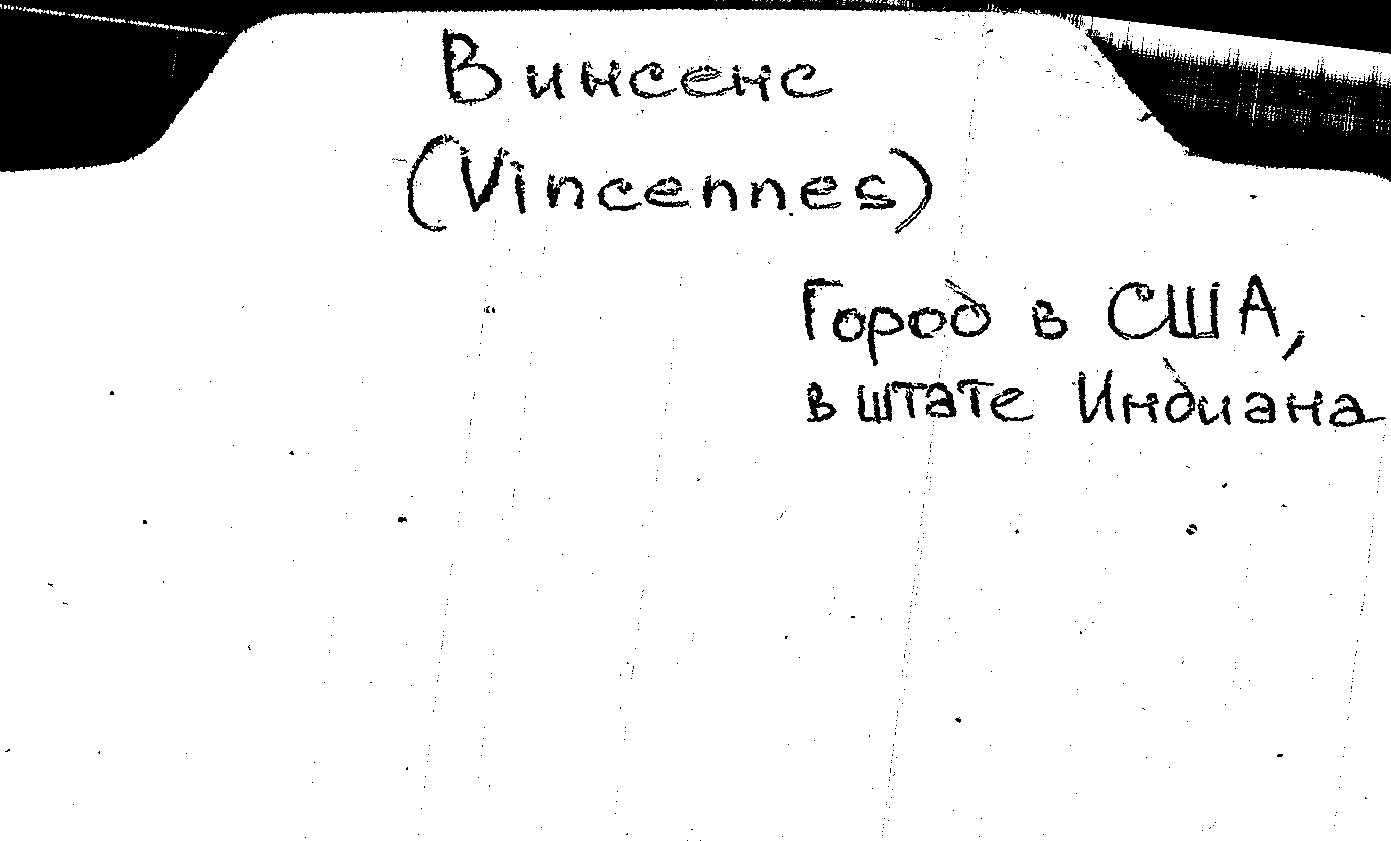 Винсенс
(Vincennes)
Город в США,
в штате Индиана